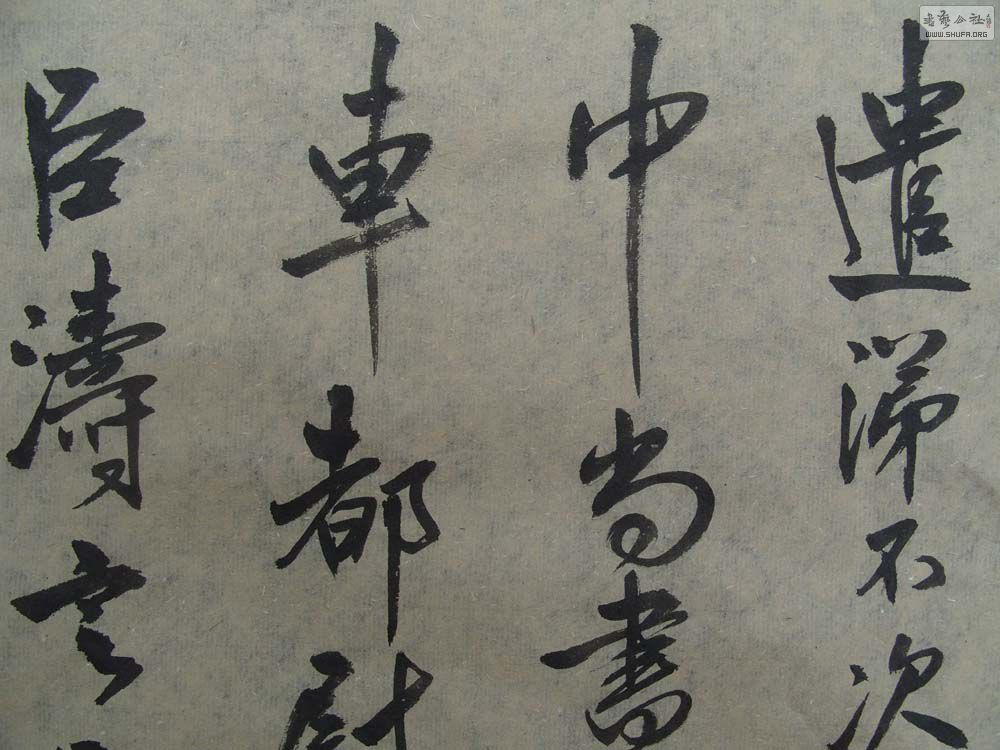 遣涕不次
中尚書
車都尉
臣濤言
書藝公社
WWW.SHUFA.ORG